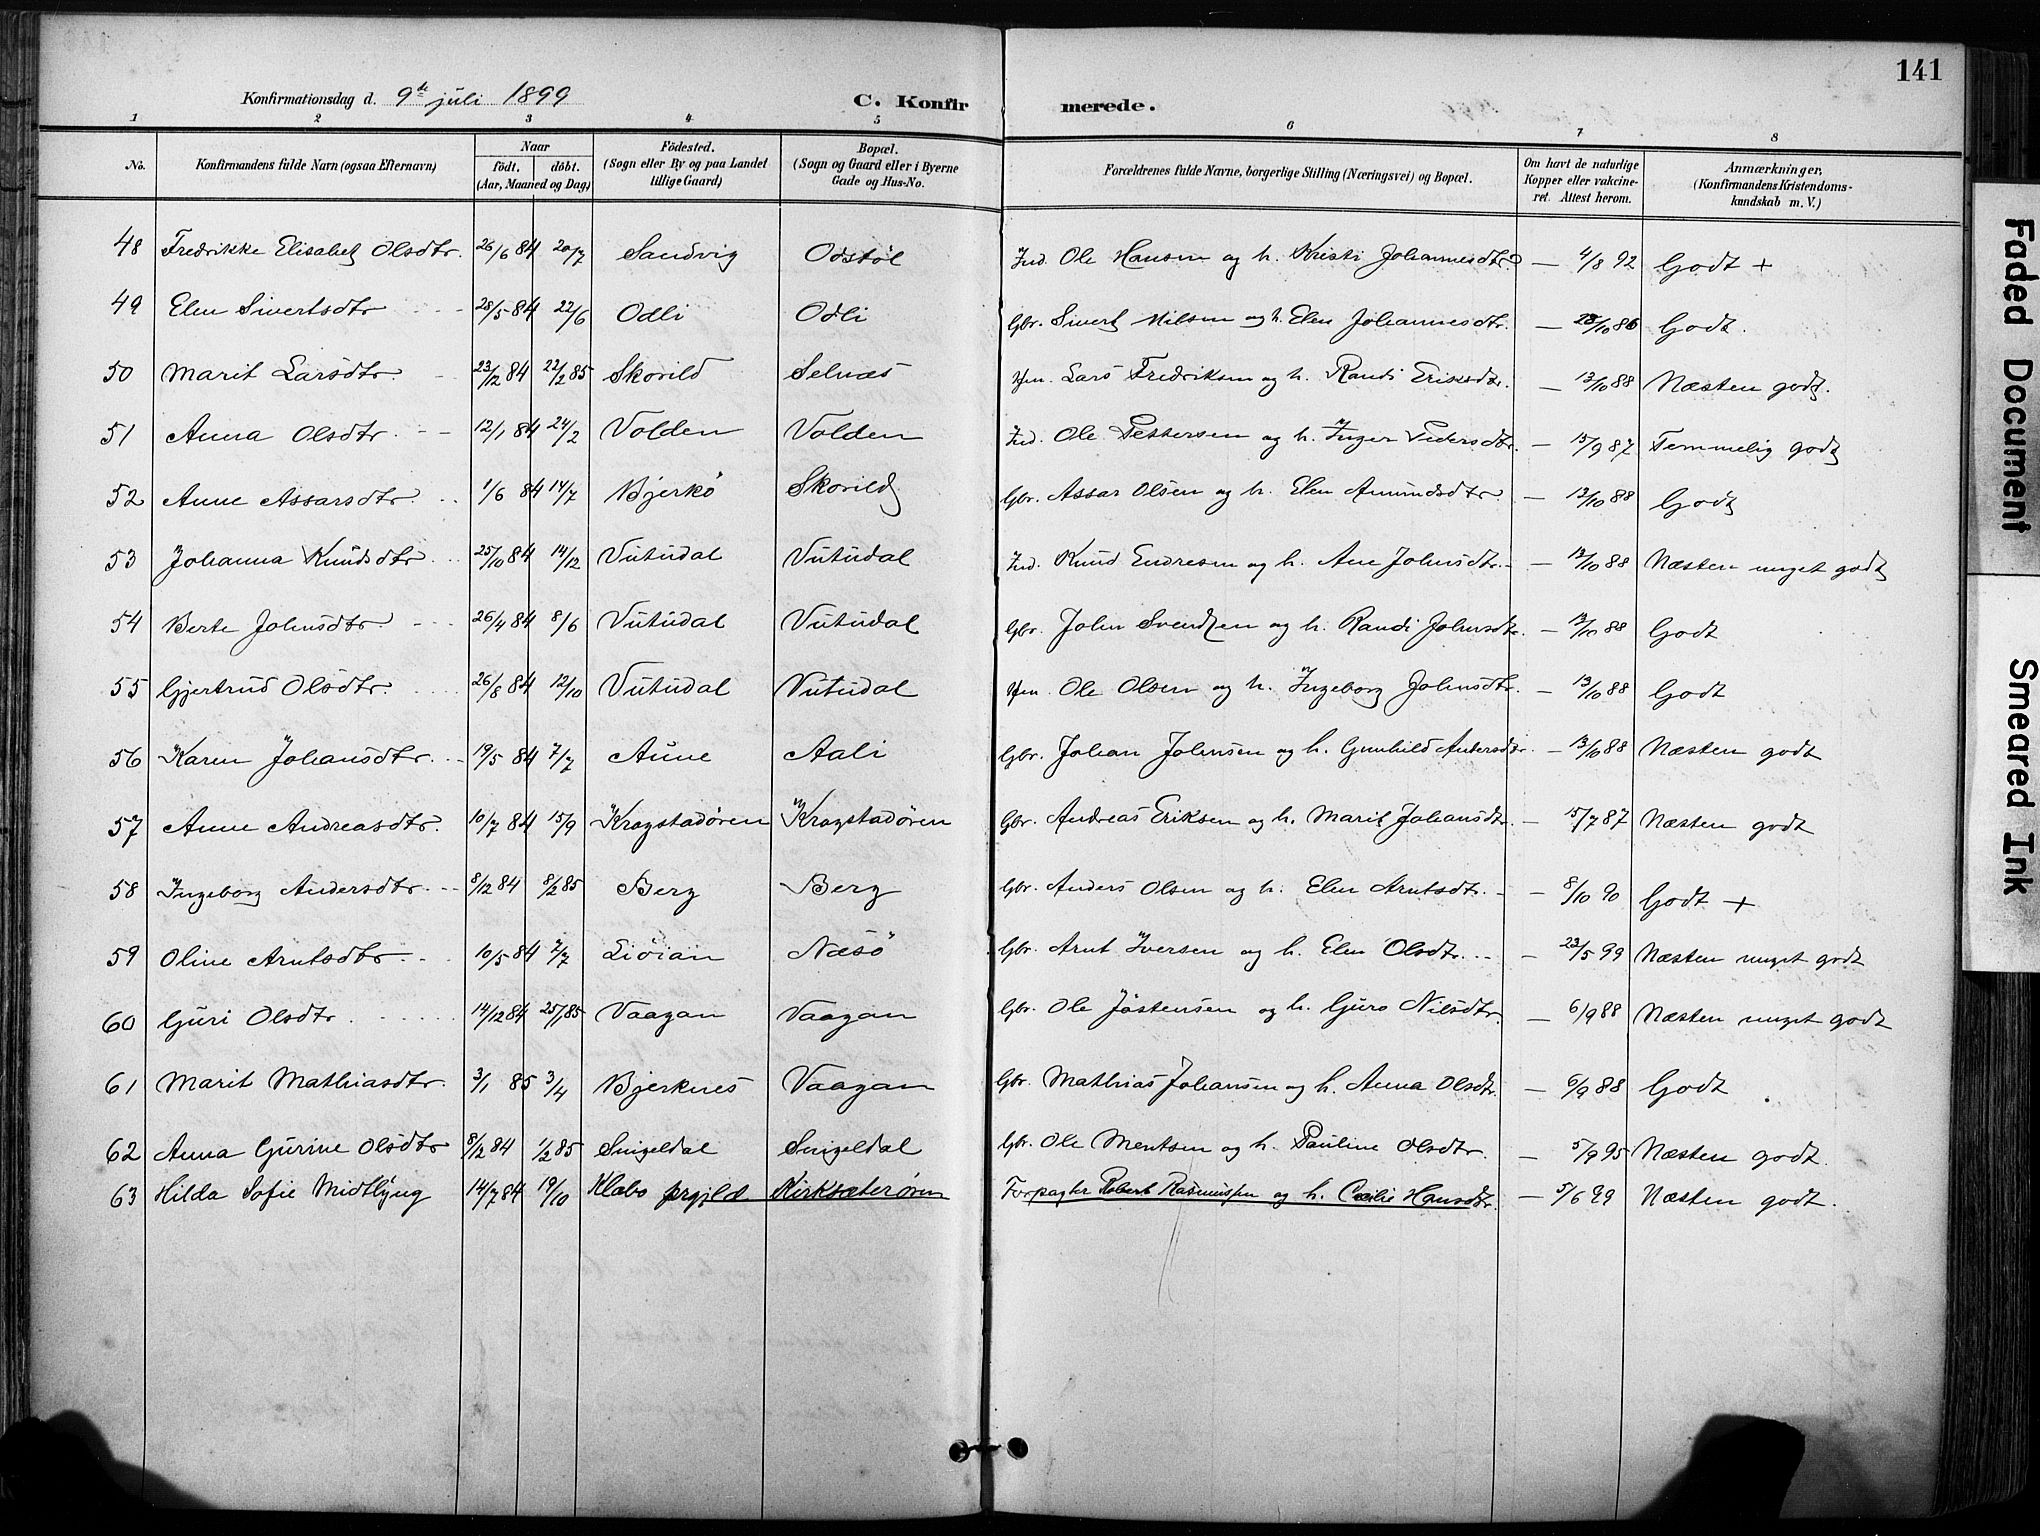 141
Konfirmationsdag d. 9de juli 1899 C. Konfirmerede.
1 2 3 4 5 6 7 8
No. Konfirmandens fulde Navn (ogsaa Efternavn) Naar født, døbt. (Aar, Maaned og Dag) Fødested. (Sogn eller By og paa Landet tillige Gaard) Bopæl. (Sogn og Gaard eller i Byerne Gade og Hus-No. Forældrenes fulde Navne, borgerlige Stilling (Næringsvei) og Bopæl. Om havt de naturlige Kopper eller vakcineret. Attest herom. Anmærkninger, (Konfirmandens Kristendomskundskab m. V.)
48 Fredrikke Elisabet Olsdtr. 26/6 84 20/7 Sandvig Odstøl Ind. Ole Hansen og h. Kristi Johannesdtr. — 4/8 92 Godt +
49 Elen Sivertsdtr 28/5 84 22/6 Odli Odli Gbr. Sivert Nilsen og h. Elen Johannesdtr. — 28/10 86 Godt.
50 Marit Larsdtr. 23/12 84 22/2 85 Skorild Selnæs Hm. Lars Fredriksen og h. Randi Eriksdtr. — 13/10 88 Næsten godt.
51 Anna Olsdtr. 12/1 84 24/2 Volden Volden Ind. Ole Pettersen og h. Inger Pedersdtr. — 15/9 87 Temmelig godt
52 Anne Assarsdtr. 1/6 84 14/7 Bjerkø Skorild Gbr. Assar Olsen og h. Elen Amundsdtr. — 13/10 88 Godt
53 Johanna Knudsdtr. 25/10 84 14/12 Vutudal Vutudal Ind. Knud Endresen og h. Ane Johnsdtr. — 13/10 88 Næsten meget godt
54 Berte Johnsdtr. 26/4 84 8/6 Vutudal Vutudal Gbr. John Svendsen og h. Randi Johnsdtr. — 13/10 88 Godt
55 Gjertrud Olsdtr. 26/8 84 12/10 Vutudal Vutudal Hm. Ole Olsen og h. Ingeborg Johnsdtr. — 13/10 88 Godt
56 Karen Johansdtr. 19/5 84 7/7 Aune Aali Gbr. Johan Johnsen og h. Gunhild Andersdtr. — 13/10 88 Næsten godt
57 Anne Andreasdtr. 10/7 84 15/9 Kragstadøren Kragstadøren Gbr. Andreas Eriksen og h. Marit Johansdtr. — 15/7 87 Næsten godt
58 Ingeborg Andersdtr. 8/12 84 8/2 85 Berg Berg Gbr. Anders Olsen og h. Elen Arntsdtr. — 8/10 90 Godt +
59 Oline Arntsdtr. 10/5 84 7/7 Liøian Næsø Gbr. Arnt Iversen og h. Elen Olsdtr. — 23/5 99 Næsten meget godt
60 Guri Olsdtr 14/12 84 25/1 85 Vaagan Vaagan Gbr. Ole Jøstensen og h. Guro Nilsdtr. — 6/9 88 Næsten meget godt
61 Marit Mathiasdtr. 3/1 85 3/4 Bjerknes Vaagan Gbr. Mathias Johansen og h. Anna Olsdtr. — 6/9 88 Godt
62 Anna Gurine Olsdtr 8/12 84 1/2 85 Singeldal Singeldal Gbr. Ole Mentsen og h. Pauline Olsdtr. — 5/9 95 Næsten godt.
63 Hilda Sofie Midtlyng 14/7 84 19/10 Klæbo prgjld Kirksæterøren Forpagter Robert Rasmussen og h. Cæilie Hansdtr. — 5/6 99 Næsten godt.
Faded Document
Smeared Ink